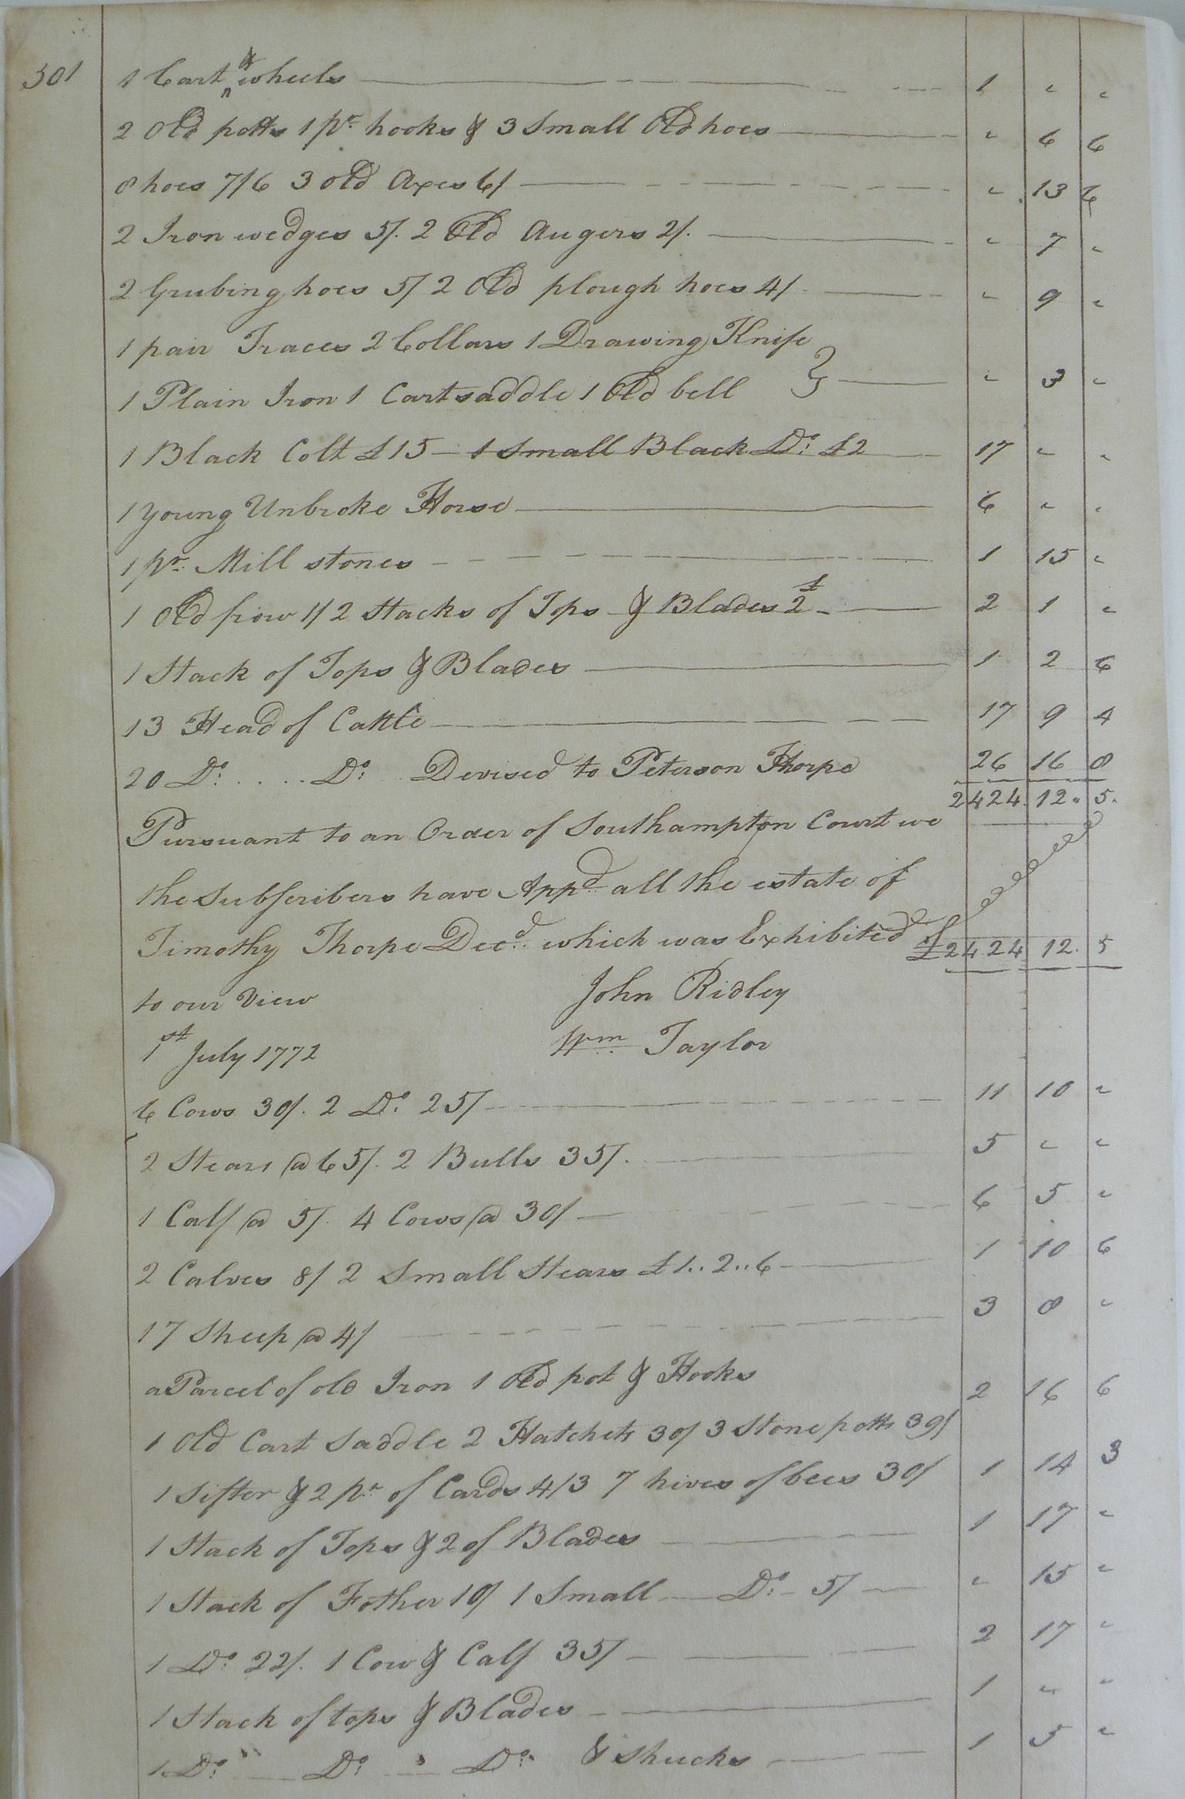 301 1 Cart & wheels 1 " "
2 Old potts 1 pr. hooks & 3 Small Old hoes " 6 6
8 hoes 7/6 3 old Axes 6/ " 13 6
2 Iron wedges 5/. 2 Old Augers 2/. " 7 "
2 Grubing hoes 5/ 2 Old plough hoes 4/ " 9 "
1 pair Traces 2 Collars 1 Drawing Knife
1 Plain Iron 1 Cartsaddle 1 Old bell } " 3 "
1 Black Colt £15 1 Small Black Do. £2 17 " "
1 Young Unbroke Horse 6 " "
1 pr. Mill stones 1 15 "
1 Old frow 1/ 2 Stacks of Tops & Blades £2 2 1 "
1 Stack of Tops & Blades 1 2 6
13 Head of Cattle 17 9 4
20 Do. .... Do. Devised to Peterson Thorpe 26 16 8
2424. 12. 5.
Pursuant to an Order of Southampton Court we
the Subscribers have Appd. all the estate of
Timothy Thorpe Decd. which was Exhibited of £2424 12. 5
to our View John Ridley
1st July 1772 Wm Taylor
6 Cows 30/. 2 Do. 25/ 11 10 "
2 Stears @ 65/. 2 Bulls 35/. 5 " "
1 Calf @ 5/. 4 Cows @ 30/ 6 5 "
2 Calves 8/ 2 Small Stears £1..2..6 1 10 6
17 Sheep @ 4/ 3 8 "
a Parcel of old Iron 1 Old pot & Hooks
1 Old Cart Saddle 2 Hatchets 30/ 3 Stone potts 39/ 2 16 6
1 Sifter & 2 pr of Cards 4/3 7 hives of bees 30/ 1 14 3
1 Stack of Tops & 2 of Blades 1 17 "
1 Stack of Fother 10/ 1 Small Do. 5/ " 15 "
1 Do. 22/. 1 Cow & Calf 35/ 2 17 "
1 Stack of tops & Blades 1 " "
1 Do. Do. Do. & Shucks 1 5 "